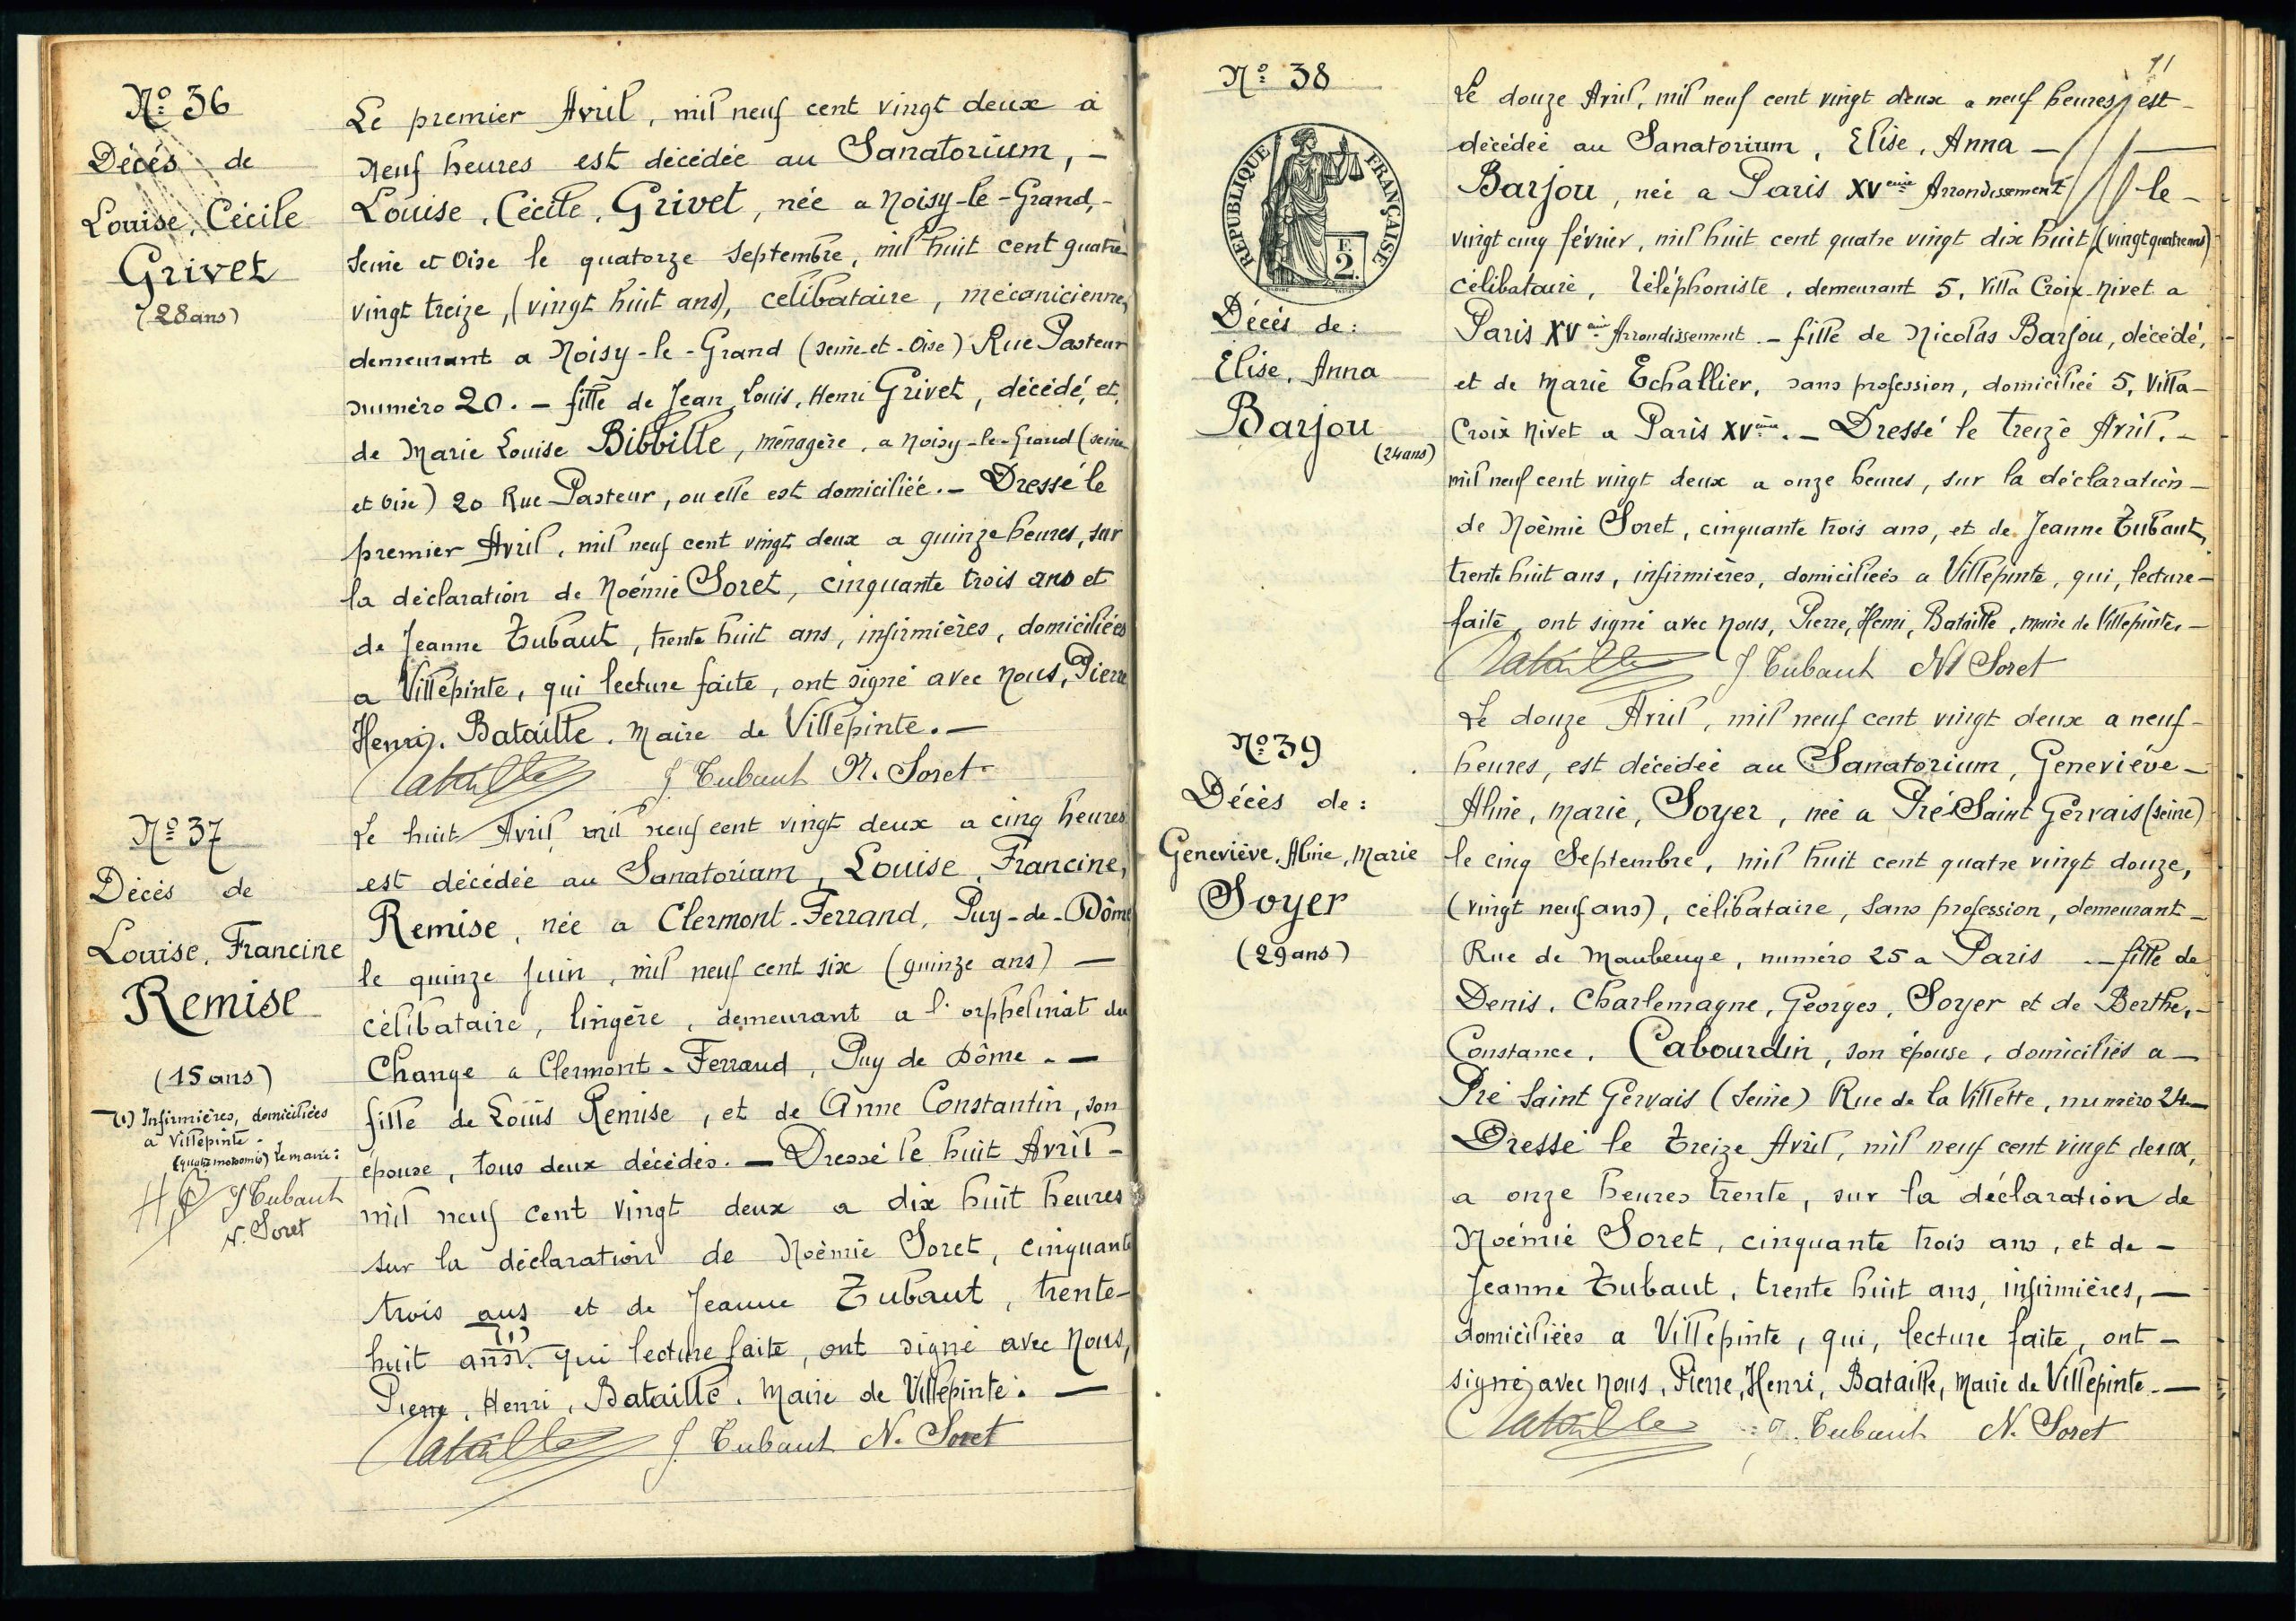 Nº 36
Décés de
Louise, Cécile
Grivet
(28 ans)
Le premier Avril, mil neuf cent vingt deux à
neuf heures est décédée au Sanatorium, -
Louise, Cécile, Grivet, née a Noisy-le-Grand, -
Seine et Oise le quatorze Septembre, mil huit cent quatre
vingt treize, (vingt huit ans), célibataire, mécanicienne,
demeurant a Noisy-le-Grand (Seine-et-Oise) Rue Pasteur
numéro 20. - fille de Jean, Louis, Henri Grivet, décédé, et,
de Marie Louise Bibbille, ménagère, a Noisy-le-Grand (Seine
et Oise) 20 Rue Pasteur, ou elle est domiciliée. - Dressé le
premier Avril, mil neuf cent vingt deux a quinze heures, sur
la déclaration de Noémie Soret, cinquante trois ans et
de Jeanne Tubaut, trente huit ans, infirmières, domiciliées
a Villepinte, qui lecture faite, ont signé avec Nous, Pierre
Henri, Bataille. Maire de Villepinte. -
Bataille J Tubaut N. Soret
Nº 37
Décés de
Louise, Francine
Remise
(15 ans)
(1) Infirmières, domiciliées
a Villepinte.
(quatre mots omis) Le maire:
J Tubaut
N. Soret
Le huit Avril mil neuf cent vingt deux a cinq heures
est décédée au Sanatorium, Louise, Francine,
Remise, née a Clermont-Ferrand, Puy-de-Dôme
le quinze Juin, mil neuf cent six (quinze ans) -
célibataire, lingère, demeurant a l'orphelinat du
Change a Clermont-Ferrand, Puy de Dôme. -
fille de Louis Remise, et de Anne Constantin, son
épouse, tous deux décédés. - Dressé le huit Avril -
mil neuf cent vingt deux a dix huit heures
sur la déclaration de Noémie Soret, cinquante
trois ans et de Jeanne Tubaut, trente-
huit ans (1). qui lecture faite, ont signé avec Nous,
Pierre, Henri, Bataille. Maire de Villepinte. -
Bataille J. Tubaut N. Soret
11
Nº 38
REPUBLIQUE FRANÇAISE
F.
2.
Décés de:
Elise, Anna
Barjou
(24 ans)
Le douze Avril, mil neuf cent vingt deux a neuf heures, est -
décédée au Sanatorium, Elise, Anna -
Barjou, née a Paris XVeme Arrondissement le -
vingt cinq février, mil huit cent quatre vingt dix huit, (vingt quatre ans)
célibataire, téléphoniste, demeurant 5, Villa Croix-Nivet a
Paris XVeme Arrondissement. - fille de Nicolas Barjou, décédé,
et de Marie Echallier, sans profession, domiciliée 5, Villa -
Croix Nivet a Paris XVeme. - Dressé le treize Avril. -
mil neuf cent vingt deux a onze heures, sur la déclaration -
de Noémie Soret, cinquante trois ans, et de Jeanne Tubaut,
trente huit ans, infirmières, domiciliées a Villepinte, qui, lecture -
faite, ont signé avec nous, Pierre, Henri, Bataille, maire de Villepinte. -
Bataille J Tubaut N Soret
Nº 39
Décès de:
Geneviève, Aline, Marie
Soyer
(29 ans)
Le douze Avril, mil neuf cent vingt deux a neuf -
heures, est décédée au Sanatorium, Geneviève -
Aline, Marie, Soyer, née a Pré-Saint Gervais (Seine)
le cinq Septembre, mil huit cent quatre vingt douze,
(vingt neuf ans), célibataire, sans profession, demeurant -
Rue de Maubeuge, numéro 25 a Paris. - fille de
Denis, Charlemagne, Georges, Soyer et de Berthe, -
Constance, Cabourdin, son épouse, domiciliés a -
Pré Saint Gervais (Seine) Rue de la Villette, numéro 24 -
Dressé le treize Avril, mil neuf cent vingt deux,
a onze heures trente, sur la déclaration de
Noémie Soret, cinquante trois ans, et de -
Jeanne Tubaut, trente huit ans, infirmières, -
domiciliées a Villepinte, qui, lecture faite, ont -
signé, avec nous, Pierre, Henri, Bataille, Maire de Villepinte. -
Bataille J. Tubaut N. Soret